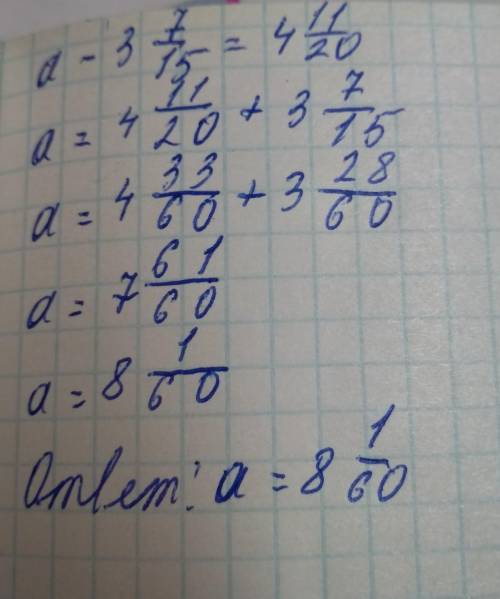 a - 3 7/15 = 4 11/20
a = 4 11/20 + 3 7/15
a = 4 33/60 + 3 28/60
a = 7 61/60
a = 8 1/60
Ответ: a = 8 1/60